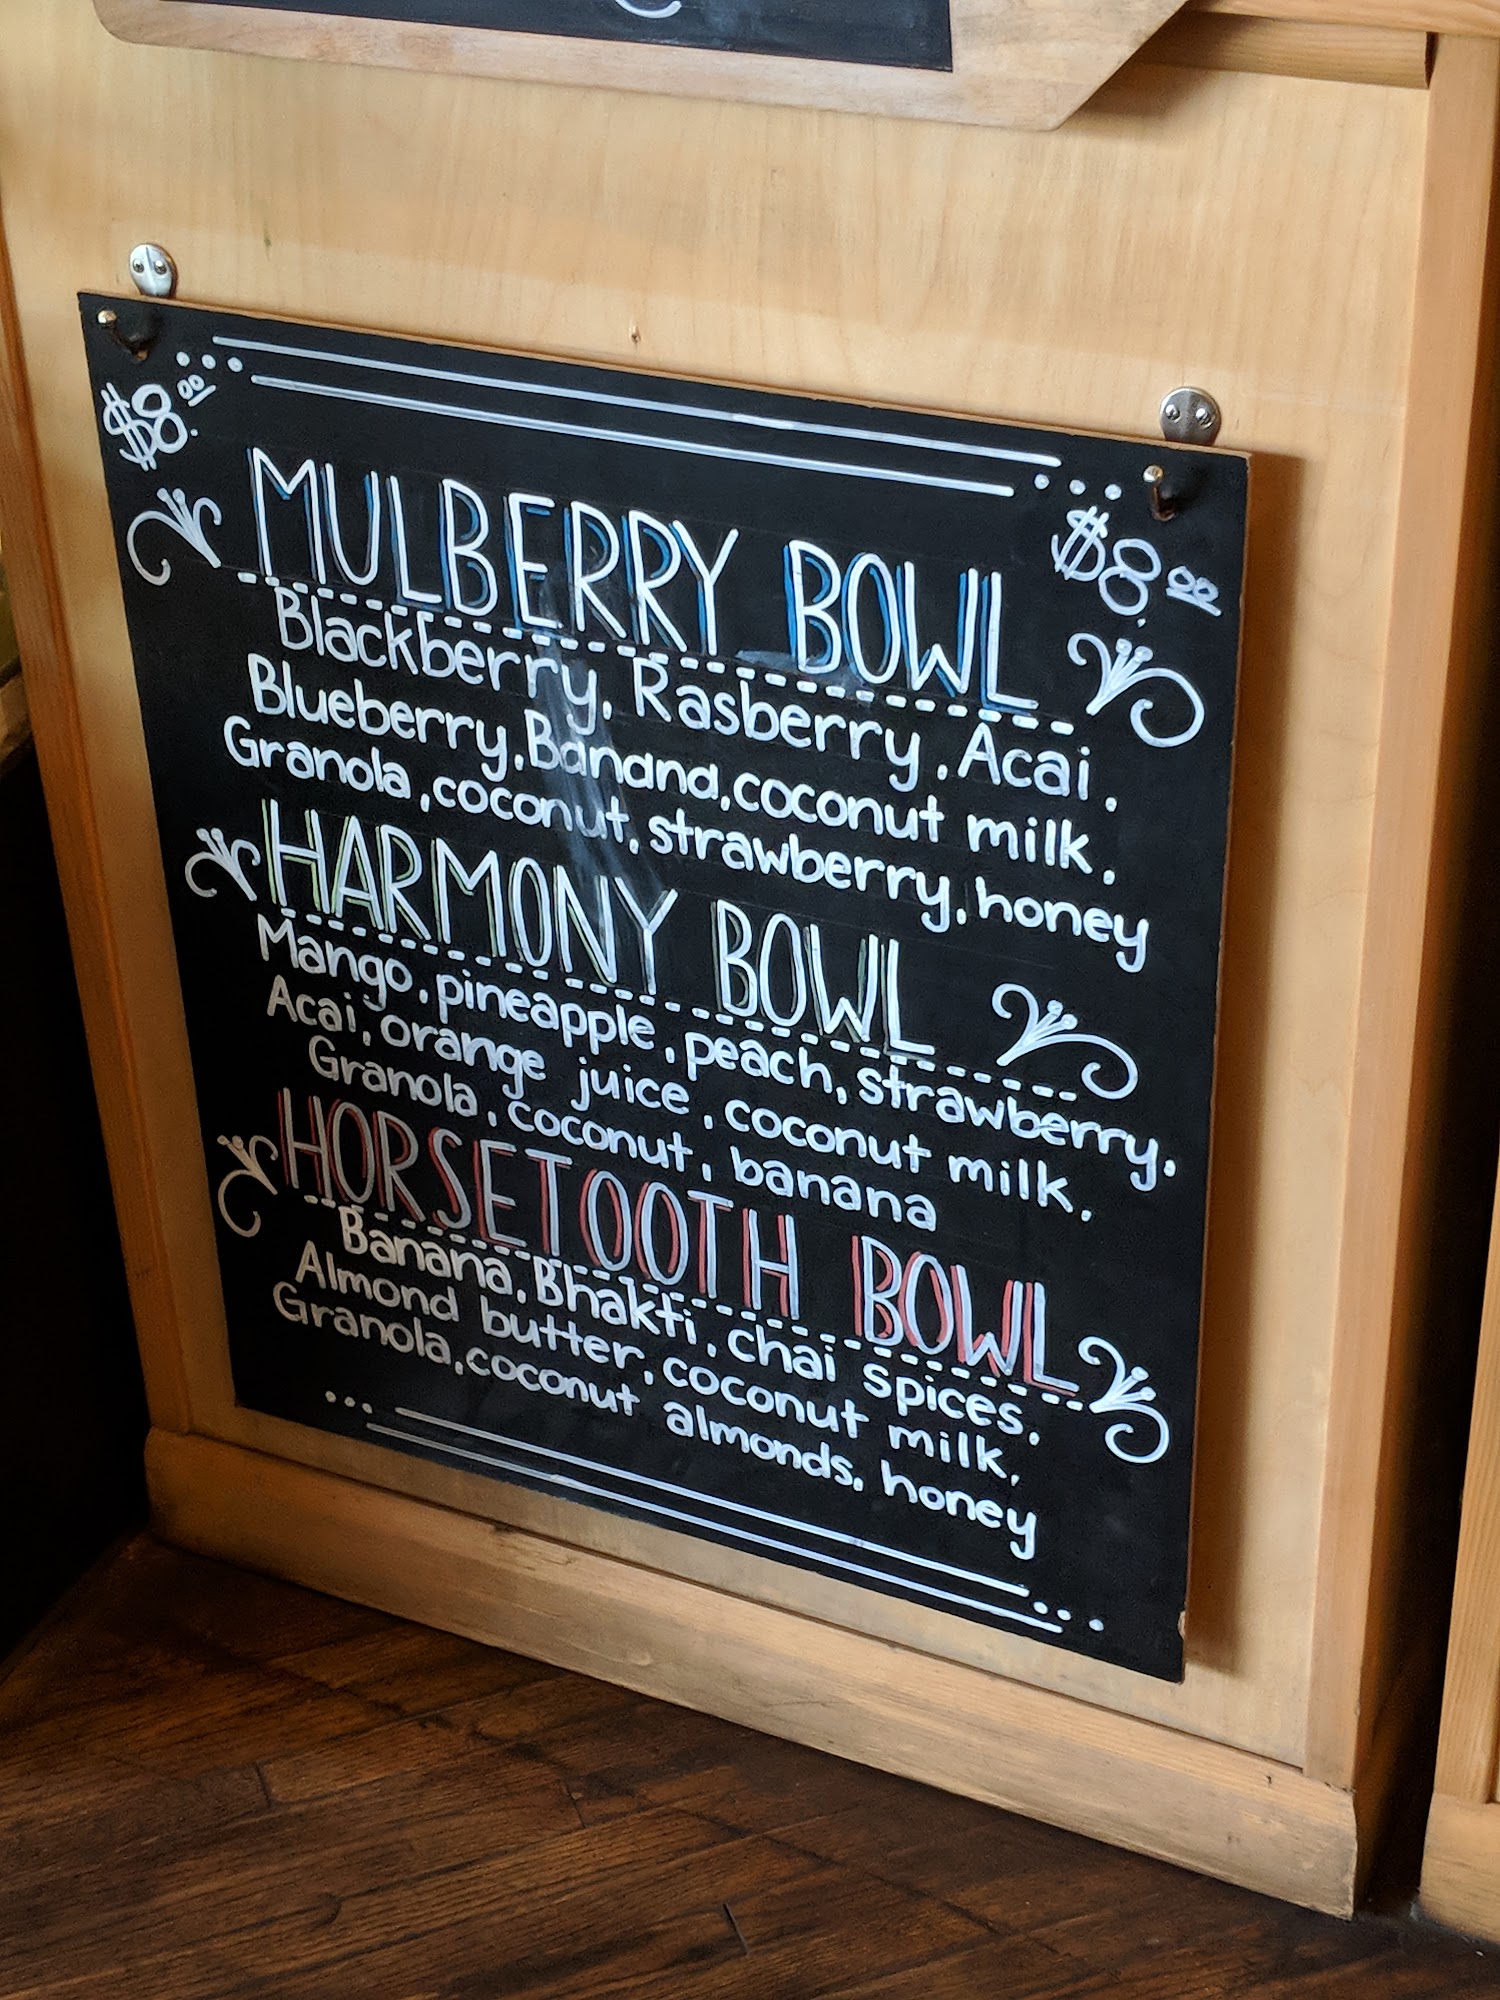 $8.00
$8.00
MULBERRY BOWL
Blackberry, Rasberry, Acai,
Blueberry, Banana, coconut milk,
Granola, coconut, strawberry, honey
HARMONY BOWL
Mango, pineapple, peach, strawberry,
Acai, orange juice, coconut milk,
Granola, coconut, banana
HORSETOOTH BOWL
Banana, Bhakti, chai spices,
Almond butter, coconut milk,
Granola, coconut almonds, honey